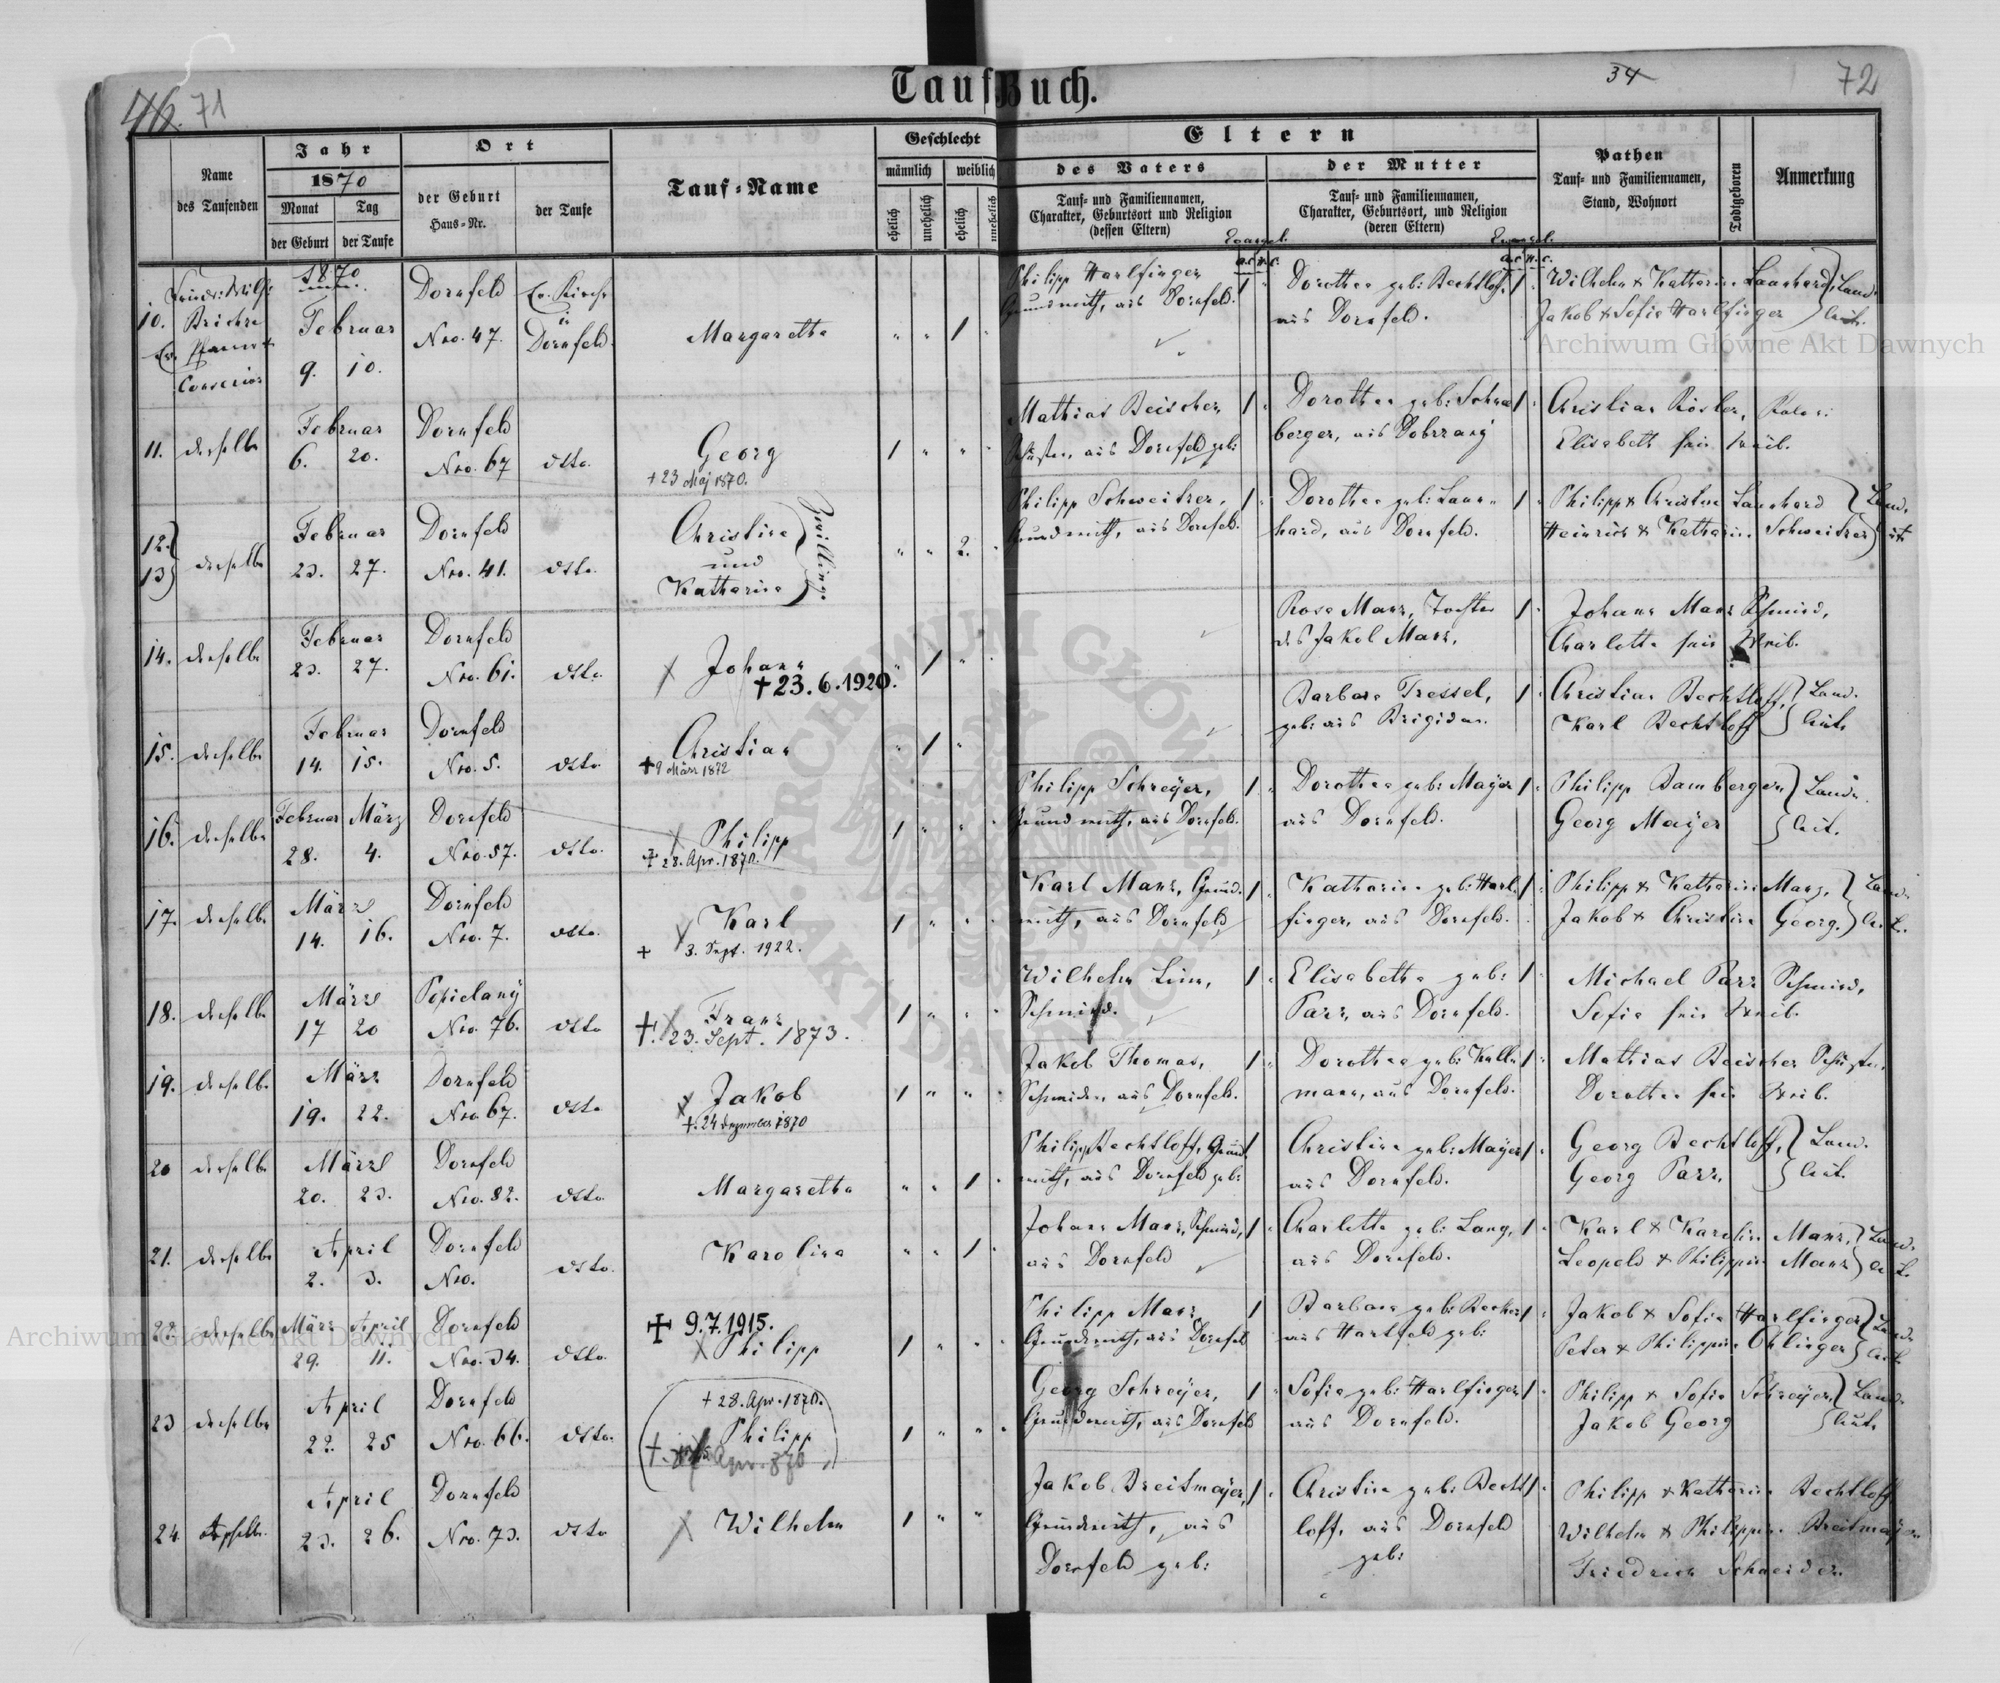 Tauf-Buch.
46. 71
34
72
Name
des Taufenden
Jahr
1870
Monat
Tag
der Geburt
der Taufe
Ort
der Geburt
Haus-Nr.
der Taufe
Tauf-Name
Geschlecht
männlich
weiblich
ehelich
unehelich
ehelich
unehelich
Eltern
des Vaters
Tauf- und Familiennamen,
Charakter, Geburtsort und Religion
(dessen Eltern)
Evangel.
A.C. H.C.
der Mutter
Tauf- und Familiennamen,
Charakter, Geburtsort, und Religion
(deren Eltern)
Evangel.
A.C. H.C.
Pathen
Tauf- und Familiennamen,
Stand, Wohnort
Todtgeboren
Anmerkung
10.
Ev. Pfarrer
1870
Februar
9. 10.
Dornfeld
Nro. 47.
Ev. Kirche
in
Dornfeld.
Margaretha
" " 1 "
Philipp Harlfinger
Grundwirth, aus Dornfeld.
1
Dorothea geb: Bechtloff,
aus Dornfeld.
1
Wilhelm & Katharina Laanhard,
Jakob & Sofia Harlfinger
Land-
leute.
11. derselbe
Februar
6. 20.
Dornfeld
Nro. 67
dtto.
Georg
+ 23 Maj 1870.
1 " " "
Mathias Beischer,
aus Dornfeld geb:
1
Dorothea geb: Schnee
berger, aus Dobrzany
1
Christian Rösler,
Elisabeth sein Weib.
12.
13
derselbe
Februar
23. 27.
Dornfeld
Nro. 41.
dtto.
Christine
und
Katharina
Zwillinge
" " 2. "
Philipp Schweitzer,
Grundwirth, aus Dornfeld.
1
Dorothea geb: Laan-
hard, aus Dornfeld.
1
Philipp & Christine Laanhard
Heinrich & Katharina Schweitzer
Land-
leute
14. derselbe
Februar
23. 27.
Dornfeld
Nro. 61.
dtto.
Johann
+ 23.6.1920.
" 1 " "
Rosa Manz, Tochter
des Jakob Manz.
1
Johann Manz Schmied,
Charlotte sein Weib.
15. derselbe
Februar
14. 15.
Dornfeld
Nro. 5.
dtto.
Christian
+ 9 März 1872
" 1 "
Barbara Tressel,
geb: aus Brigidau.
1
Christian Bechtloff,
Karl Bechtloff
Land-
leute
16. derselbe
Februar März
28. 4.
Dornfeld
Nro. 57.
dtto.
Philipp
+ 28. Apr. 1870.
1 " " "
Philipp Schreyer,
Grundwirth, aus Dornfeld.
1
Dorothea geb: Mayer
aus Dornfeld.
1
Philipp Bamberger
Georg Mayer
Land-
leut.
17. derselbe
März
14. 16.
Dornfeld
Nro. 7.
dtto.
Karl
+ 3. Sept. 1922.
1 " " "
Karl Manz, Grund-
wirth, aus Dornfeld
1
Katharina geb: Harl-
finger, aus Dornfeld.
1
Philipp & Katharina Manz,
Jakob & Christine Georg.
Land-
leut.
18. derselbe
März
17 20
Popielany
Nro. 76.
dtto
Franz
+. 23. Sept. 1873.
1 " " "
Wilhelm Linn,
Schmied.
1
Elisabetha geb:
Parr, aus Dornfeld.
1
Michael Parr Schmied,
Sofia sein Weib.
19. derselbe
März
19. 22.
Dornfeld
Nro. 67.
dtto
Jakob
+. 24 Dezember 1870
1 " " "
Jakob Thomas,
Schneider, aus Dornfeld.
1
Dorothea geb: Kull-
mann, aus Dornfeld.
1
Mathias Beischer
Dorothea sein Weib.
20 derselbe
März
20. 23.
Dornfeld
Nro. 82.
dtto.
Margaretha
" " 1 "
Philipp Bechtloff, Grund
wirth, aus Dornfeld geb:
1
Christine geb: Mayer
aus Dornfeld.
1
Georg Bechtloff,
Georg Parr,
Land-
leut.
21. derselbe
April
2. 3.
Dornfeld
Nro.
dtto.
Karolina
" " 1 "
Johann Manz, Schmied,
aus Dornfeld
1
Charlotte geb: Lang,
aus Dornfeld.
1
Karl & Karolin Manz,
Leopold & Philippine Manz
Land-
leut.
22. derselbe
März April
29. 11.
Dornfeld
Nro. 34.
dtto.
+ 9.7.1915.
Philipp
1 " "
Philipp Manz
Grundwirth, aus Dornfeld
1
Barbara geb: Becker
aus Hartfeld geb:
1
Jakob & Sofia Harlfinger
Peter & Philippine Ohlinger
Land-
leut.
23 derselbe
April
22. 25
Dornfeld
Nro. 66.
dtto.
+ 28. Apr. 1870.
Philipp
1 " " "
Georg Schreyer,
Grundwirth, aus Dornfeld
1
Sofia geb: Harlfinger
aus Dornfeld.
1
Philipp & Sofia Schreyer,
Jakob Georg
Land-
leut.
24. derselbe.
April
23. 26.
Dornfeld
Nro. 73.
dtto
Wilhelm
1 " "
Jakob Breitmayer,
Grundwirth, aus
Dornfeld geb:
1
Christine geb: Becht
loff, aus Dornfeld
geb:
1
Philipp & Katharina Bechtloff
Wilhelm & Philippine Breitmayer
Friedrich Schneider.
Archiwum Główne Akt Dawnych
Archiwum Główne Akt Dawnych
ARCHIWUM GŁÓWNE AKT DAWNYCH